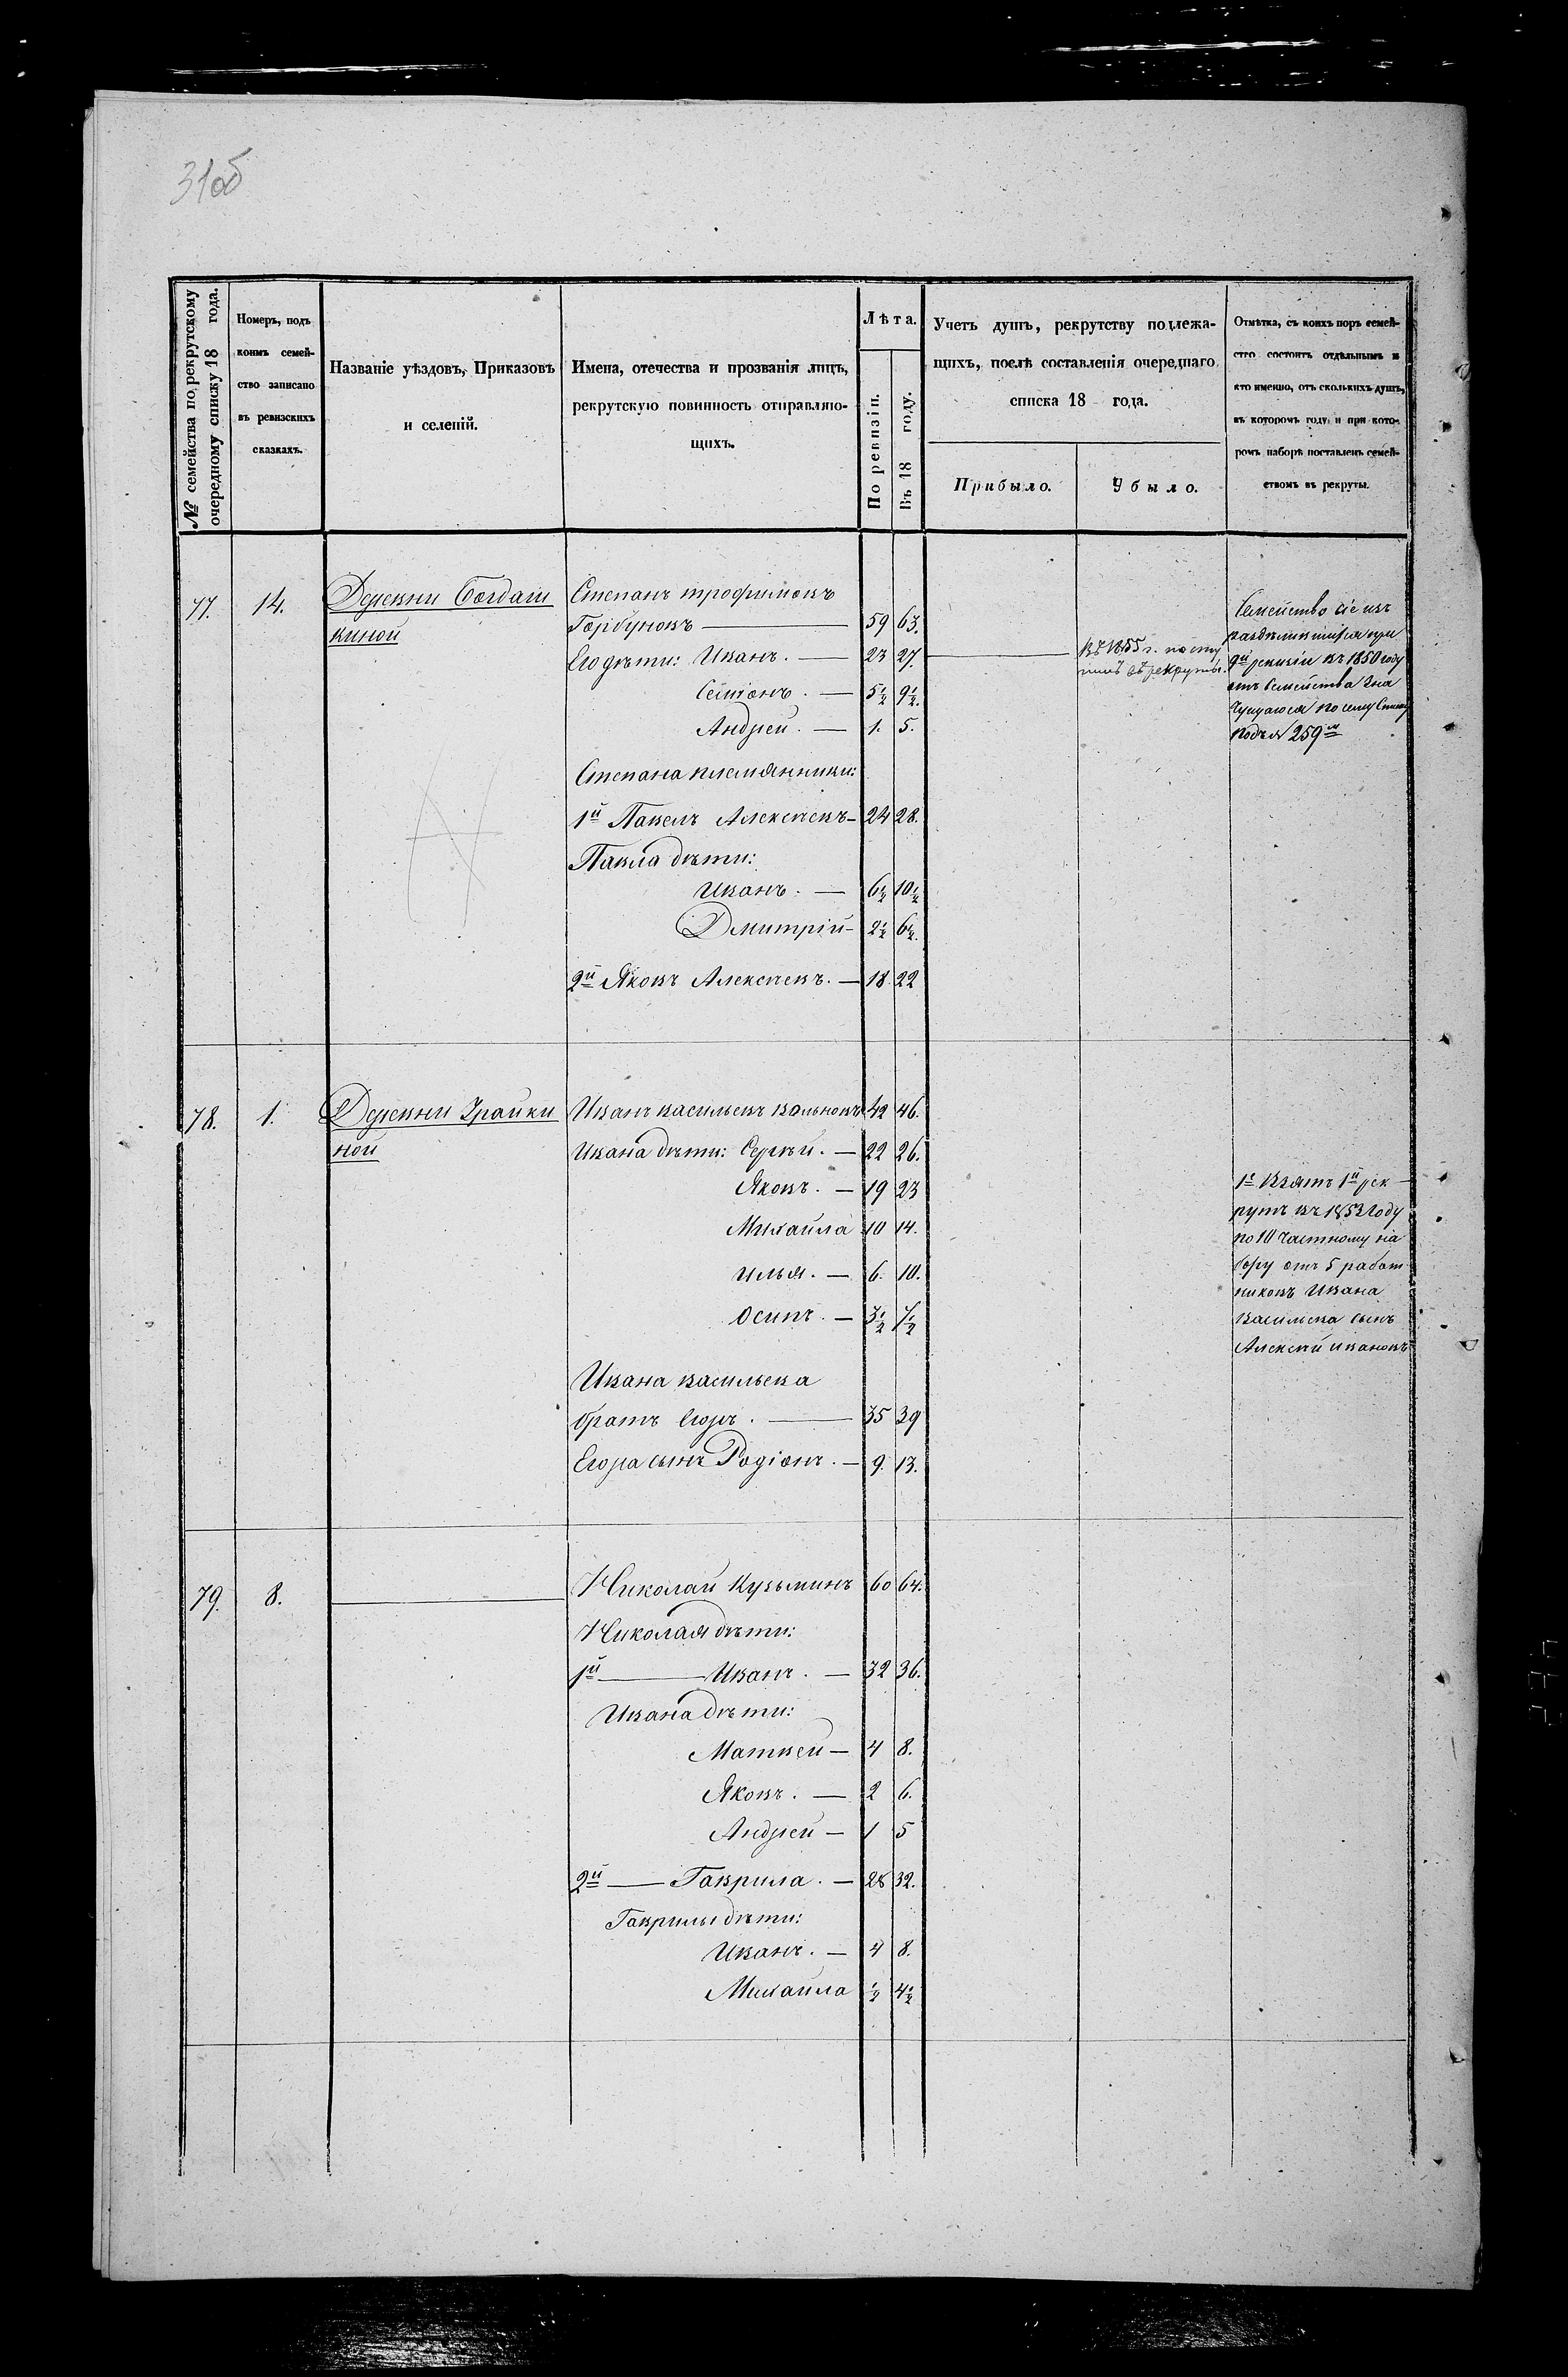 31об
№ семейства по рекрутскому
очередному списку 18 года.
Номеръ, подъ
коимъ семей-
ство записано
въ ревизскихъ
сказкахъ.
Названіе уѣздовъ, Приказовъ
и селеній.
Имена, отечества и прозванія лицъ,
рекрутскую повинность отправляю-
щихъ.
Лѣта.
По ревизіи.
Въ 18 году.
Учетъ душъ, рекрутству подлежа-
щихъ, послѣ составленія очереднаго
списка 18 года.
Прибыло.
Убыло.
Отмѣтка, съ коихъ поръ семей-
ство состоитъ отдѣльнымъ и
кто именно, отъ сколькихъ душъ,
въ которомъ году и при кото-
ромъ наборѣ поставленъ семей-
ствомъ въ рекруты.
77. 14. Деревни Богдаш
киной
Степанъ трофимовъ
Горбуновъ — 59 63.
Его дѣти: Иванъ. — 23 27.
въ 1855 г. посту
пилъ въ рекруты.
Семіонъ. — 5½ 9½.
Андрей. — 1. 5.
Степана племянники:
1й Павелъ Алексѣевъ — 24 28.
Павла дѣти:
Иванъ. — 6½ 10½
Дмитрій — 2½ 6½.
2й Яковъ Алексѣевъ. — 18 22
Семейство сіе изъ
раздѣлившихся при
9й ревизіи въ 1850 году
отъ Семейства Зна
чущагося по сему Списку
подъ № 259м
78. 1. Деревни Храйки
ной
Иванъ васильевъ вольновъ 42 46.
Ивана дѣти: Сергѣй. — 22 26.
Яковъ. — 19 23
Михаила 10 14.
Илья. — 6. 10.
Осипъ. — 3½ 7½
Ивана васильева
братъ Егоръ. — 35 39
Егора сынъ Родіонъ. — 9. 13.
1е Взятъ 1й рек
рутъ въ 1853 году
по 10 частному на
бору отъ 5 работ
никовъ Ивана
Васильева сынъ
Алексѣй ивановъ
79. 8. —
Николай Кузьминъ 60 64.
Николая дѣти:
1й — Иванъ. — 32 36.
Ивана дѣти:
Матвей — 4 8.
Яковъ. — 2 6.
Андрей — 1 5
2й — Гаврила. — 28 32.
Гаврилы дѣти:
Иванъ. — 4 8.
Михаила ½ 4½